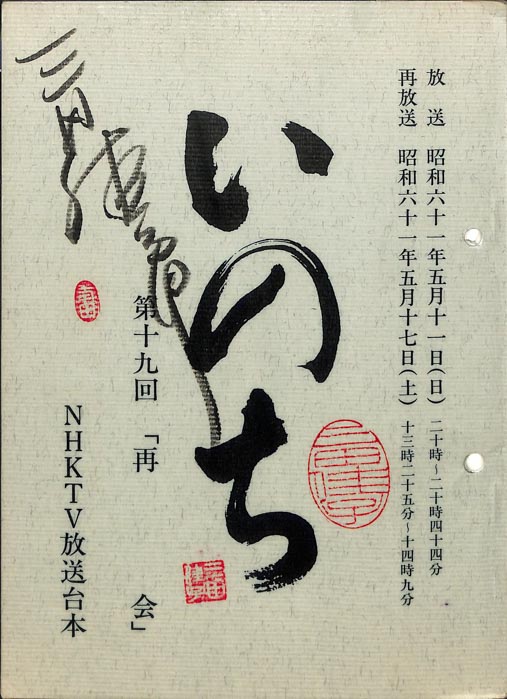 放　送　昭和六十一年五月十一日（日）二十時～二十時四十四分
再放送　昭和六十一年五月十七日（土）十三時二十五分～十四時九分
いのち
第十九回　「再　会」
NHKTV放送台本